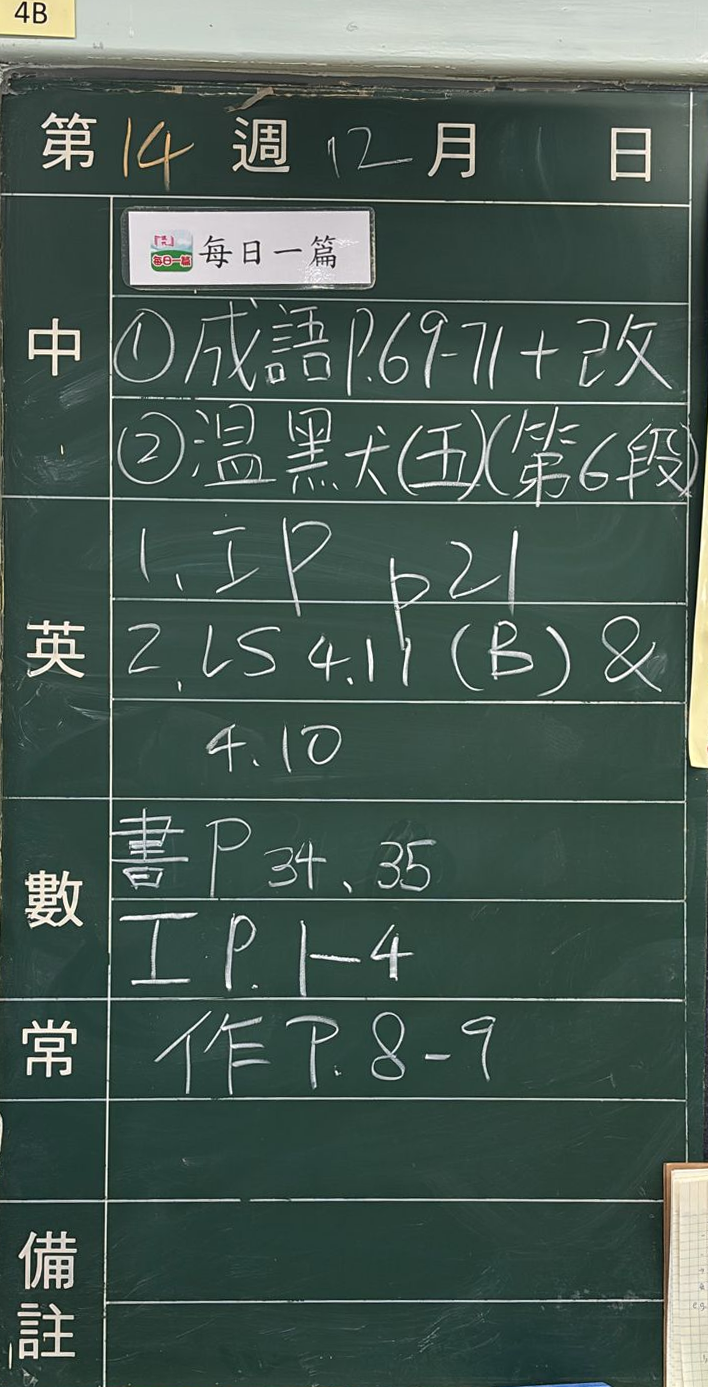 4B
第14週12月1日
中
每日一篇 每日一篇
①成語P.69-71+改
②温黑犬(五)(第6段)
英
1. IP p21
2. LS 4.11 (B) &
4.10
數
書P 34、35
工P. 1-4
常
作P. 8-9
備註